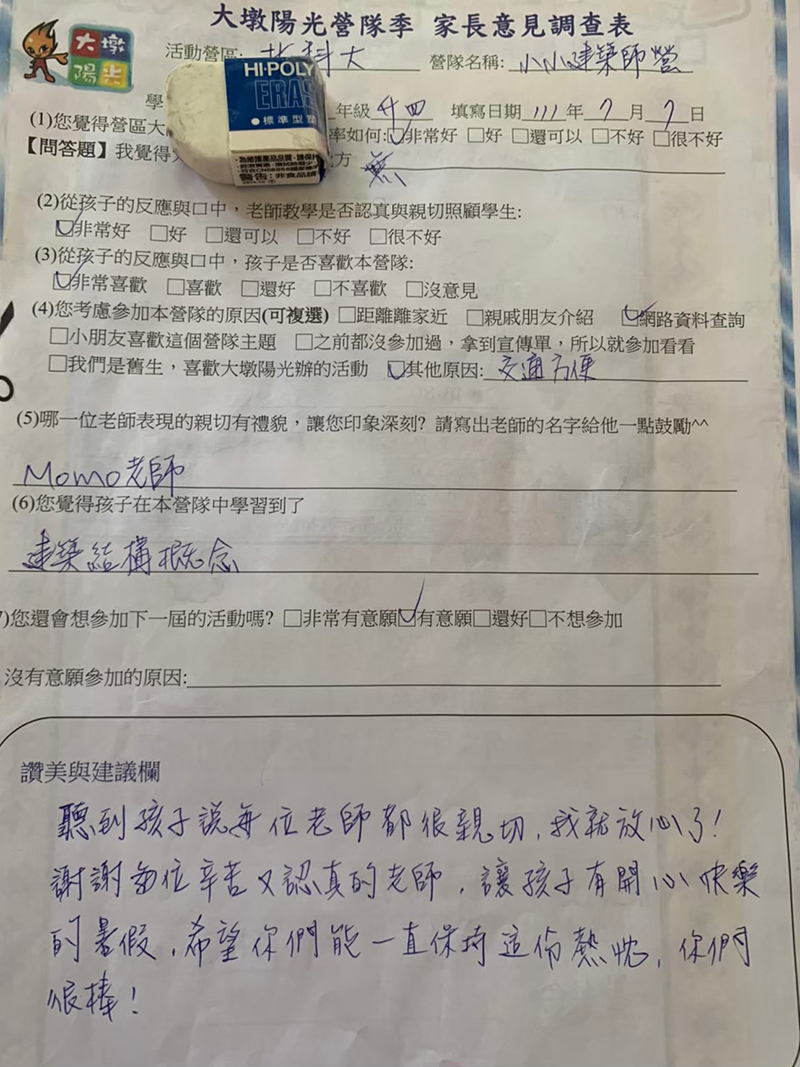 大墩陽光營隊季 家長意見調查表
大墩
陽光
活動營區: 北科大 營隊名稱: 小小建築師營
HI-POLY
ERAS
●標準型
警告:非食品
學 年級 升四 填寫日期 111 年 7 月 7 日
(1)您覺得營區大 率如何:☑非常好 □好 □還可以 □不好 □很不好
【問答題】我覺得 方 無
(2)從孩子的反應與口中，老師教學是否認真與親切照顧學生:
☑非常好 □好 □還可以 □不好 □很不好
(3)從孩子的反應與口中，孩子是否喜歡本營隊:
☑非常喜歡 □喜歡 □還好 □不喜歡 □沒意見
(4)您考慮參加本營隊的原因(可複選) □距離離家近 □親戚朋友介紹 ☑網路資料查詢
□小朋友喜歡這個營隊主題 □之前都沒參加過，拿到宣傳單，所以就參加看看
□我們是舊生，喜歡大墩陽光辦的活動 ☑其他原因: 交通方便
(5)哪一位老師表現的親切有禮貌，讓您印象深刻? 請寫出老師的名字給他一點鼓勵^^
Momo老師
(6)您覺得孩子在本營隊中學習到了
建築結構概念
)您還會想參加下一屆的活動嗎? □非常有意願☑有意願□還好□不想參加
沒有意願參加的原因:
讚美與建議欄
聽到孩子說每位老師都很親切，我就放心了!
謝謝每位辛苦又認真的老師，讓孩子有開心快樂
的暑假，希望你們能一直保持這份熱忱，你們
很棒!